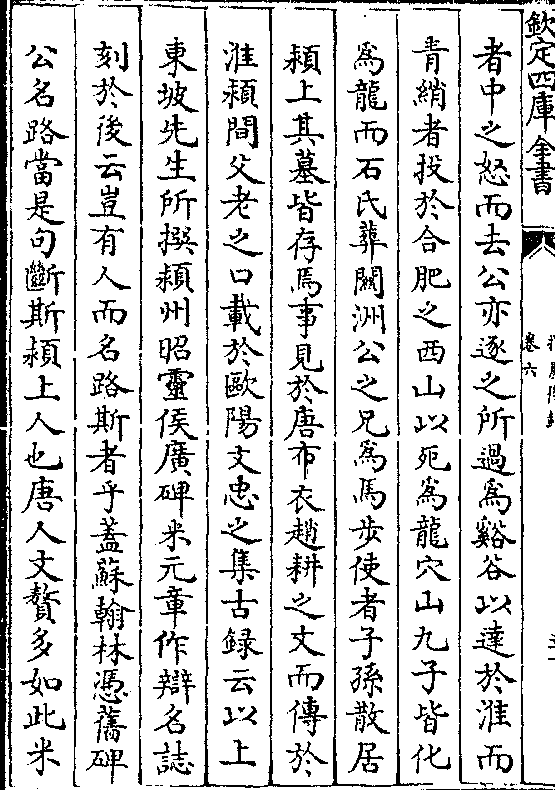 欽定四庫全書
卷六
者中之怒而去公亦逐之所過為谿谷以達於淮而
青綃者投於合肥之西山以死為龍穴山九子皆化
為龍而石氏葬關洲公之兄為馬步使者子孫散居
潁上其墓皆存焉事見於唐布衣趙耕之文而傳於
淮潁間父老之口載於歐陽文忠之集古録云以上
東坡先生所撰潁州昭靈侯廣碑米元章作辯名誌
刻於後云豈有人而名路斯者乎蓋蘇翰林憑舊碑
公名路當是句斷斯潁上人也唐人文贅多如此米